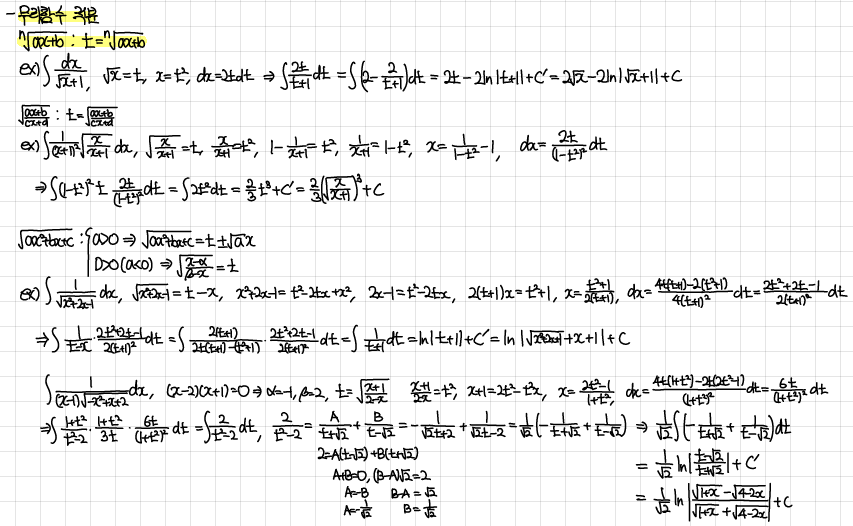 - 무리함수 적분
ⁿ√(ax+b) : t = ⁿ√(ax+b)
ex) ∫ dx/(√x+1), √x = t, x = t², dx = 2tdt ⇒ ∫ 2t/(t+1) dt = ∫(2 - 2/(t+1))dt = 2t - 2ln|t+1| + C' = 2√x - 2ln|√x+1| + C
√((ax+b)/(cx+d)) : t = √((ax+b)/(cx+d))
ex) ∫ 1/(x+1)² √(x/(x+1)) dx, √(x/(x+1)) = t, x/(x+1) = t², 1 - 1/(x+1) = t², 1/(x+1) = 1-t², x = 1/(1-t²) - 1, dx = 2t/(1-t²)² dt
⇒ ∫(1-t²)² t 2t/(1-t²)² dt = ∫2t²dt = 2/3 t³ + C' = 2/3 (√(x/(x+1)))³ + C
√(ax²+bx+c) : { a>0 ⇒ √(ax²+bx+c) = t ± √a x
D>0 (a<0) ⇒ √((x-α)/(β-x)) = t
ex) ∫ 1/√(x²+2x-1) dx, √(x²+2x-1) = t - x, x²+2x-1 = t²-2tx+x², 2x-1 = t²-2tx, 2(t+1)x = t²+1, x = (t²+1)/(2(t+1)), dx = (4t(t+1)-2(t²+1))/(4(t+1)²) dt = (2t²+2t-1)/(2(t+1)²) dt
⇒ ∫ 1/(t-x) · (2t²+2t-1)/(2(t+1)²) dt = ∫ 2(t+1)/(2t(t+1)-(t²+1)) · (2t²+2t-1)/(2(t+1)²) dt = ∫ 1/(t+1) dt = ln|t+1| + C' = ln|√(x²+2x-1)+x+1| + C
∫ 1/((x-1)√(-x²+x+2)) dx, (x-2)(x+1)=0 ⇒ α=-1, β=2, t = √((x+1)/(2-x)) (x+1)/(2-x) = t², x+1 = 2t²-t²x, x = (2t²-1)/(1+t²), dx = (4t(1+t²)-2t(2t²-1))/(1+t²)² dt = 6t/(1+t²)² dt
⇒ ∫ (1+t²)/(t²-2) · (1+t²)/3t · 6t/(1+t²)² dt = ∫ 2/(t²-2) dt, 2/(t²-2) = A/(t+√2) + B/(t-√2) = -1/(√2t+2) + 1/(√2t-2) = 1/√2 (-1/(t+√2) + 1/(t-√2)) ⇒ 1/√2 ∫(-1/(t+√2) + 1/(t-√2))dt
2 = A(t-√2) + B(t+√2)
A+B=0, (B-A)√2=2
A=-B B-A=√2
A=-1/√2 B=1/√2
= 1/√2 ln|(t-√2)/(t+√2)| + C'
= 1/√2 ln|(√(1+x) - √(4-2x))/(√(1+x) + √(4-2x))| + C